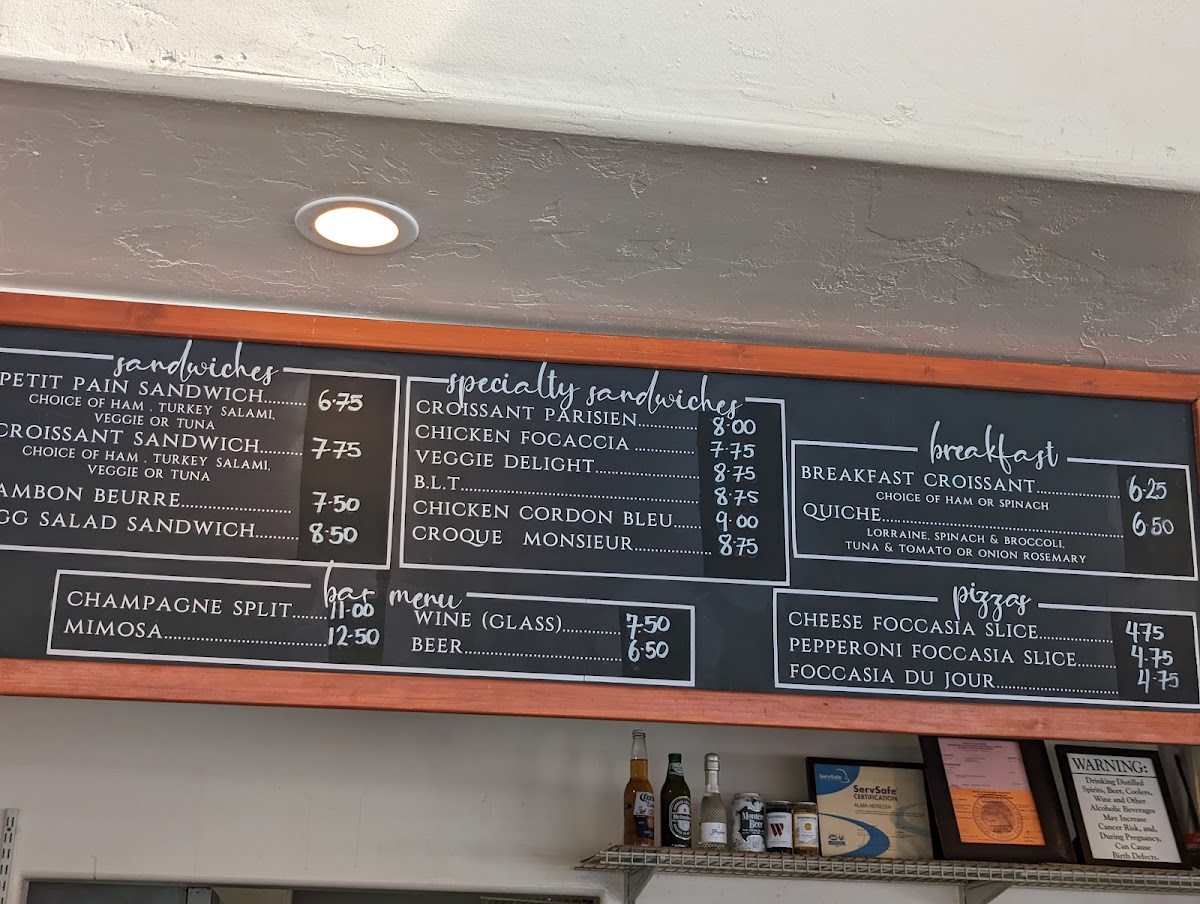 sandwiches
PETIT PAIN SANDWICH......... 6.75
CHOICE OF HAM , TURKEY SALAMI,
VEGGIE OR TUNA
CROISSANT SANDWICH........ 7.75
CHOICE OF HAM , TURKEY SALAMI,
VEGGIE OR TUNA
AMBON BEURRE...................... 7.50
GG SALAD SANDWICH........ 8.50
specialty sandwiches
CROISSANT PARISIEN............ 8.00
CHICKEN FOCACCIA ............ 7.75
VEGGIE DELIGHT.................... 8.75
B.L.T............................................. 8.75
CHICKEN CORDON BLEU...... 9.00
CROQUE MONSIEUR............... 8.75
breakfast
BREAKFAST CROISSANT................ 6.25
CHOICE OF HAM OR SPINACH
QUICHE................................................ 6.50
LORRAINE, SPINACH & BROCCOLI,
TUNA & TOMATO OR ONION ROSEMARY
bar menu
CHAMPAGNE SPLIT....... 11.00
MIMOSA................................ 12.50
WINE (GLASS)............ 7.50
BEER............................... 6.50
pizzas
CHEESE FOCCASIA SLICE................ 475
PEPPERONI FOCCASIA SLICE........ 4.75
FOCCASIA DU JOUR........................ 4.75
Corona
Heineken
Beer
W
ServSafe
ServSafe
CERTIFICATION
ALMA HEREDIA
WARNING:
Drinking Distilled
Spirits, Beer, Coolers,
Wine and Other
Alcoholic Beverages
May Increase
Cancer Risk, and,
During Pregnancy,
Can Cause
Birth Defects.